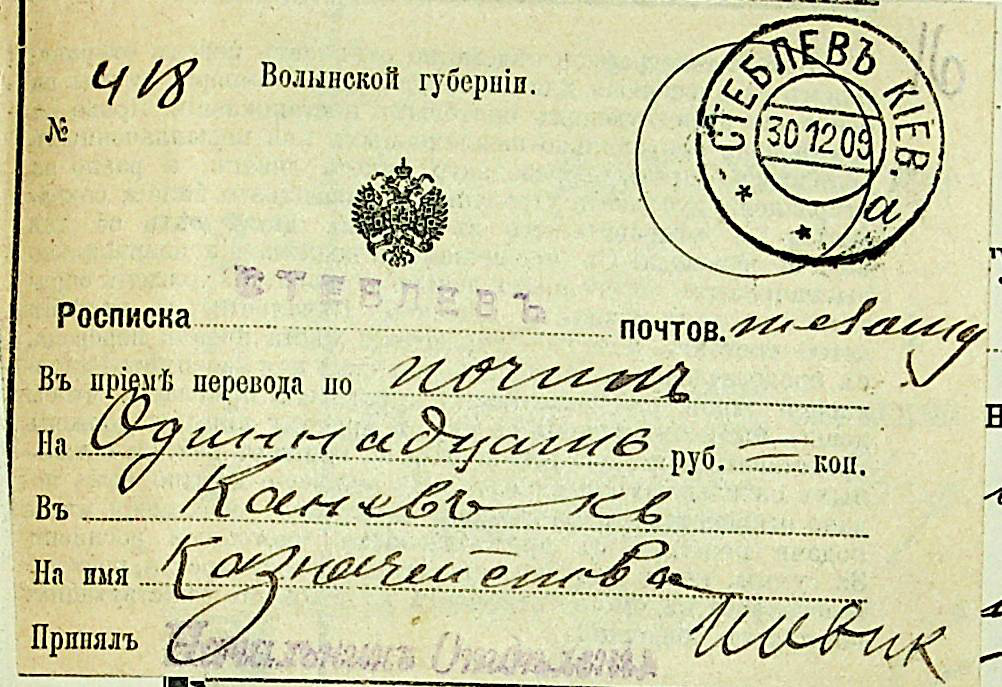 418 Волынской губерніи.
№
СТЕБЛЕВЪ КІЕВ. а
30 12 09
СТЕБЛЕВЪ
Росписка почтов.
Въ пріемѣ перевода по почтѣ
На Одиннадцать руб. = коп.
Въ Каневъ кв
На имя Казначейства
Принялъ
Начальникъ Отдѣленія